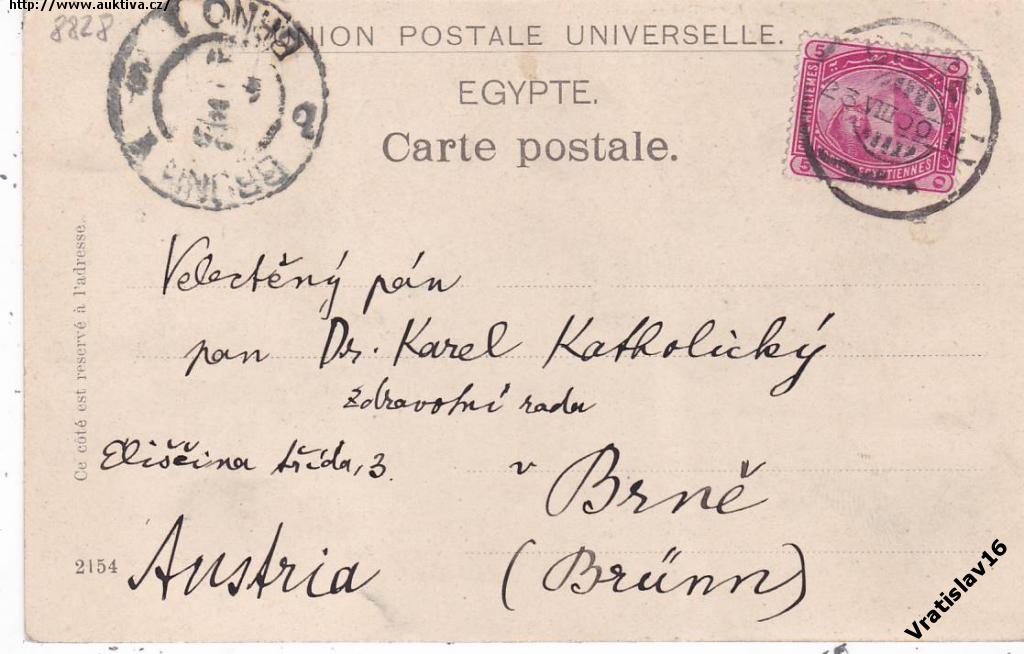 http://www.auktiva.cz/
8828
BRNO 1
BRÜNN 1
UNION POSTALE UNIVERSELLE.
EGYPTE.
Carte postale.
5
5
5
VIII 00
Ce côté est reservé à l'adresse.
Velectěný pán
pan Dr. Karel Katholický
zdravotní rada
Eliščina třída, 3.
v Brně
Austria (Brünn)
2154
Vratislav16